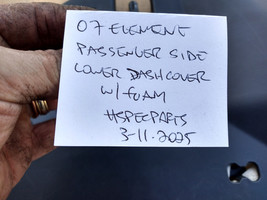 07 ELEMENT
PASSENGER SIDE
LOWER DASHCOVER
W/ FOAM
HSPECPARTS
3-11-2025